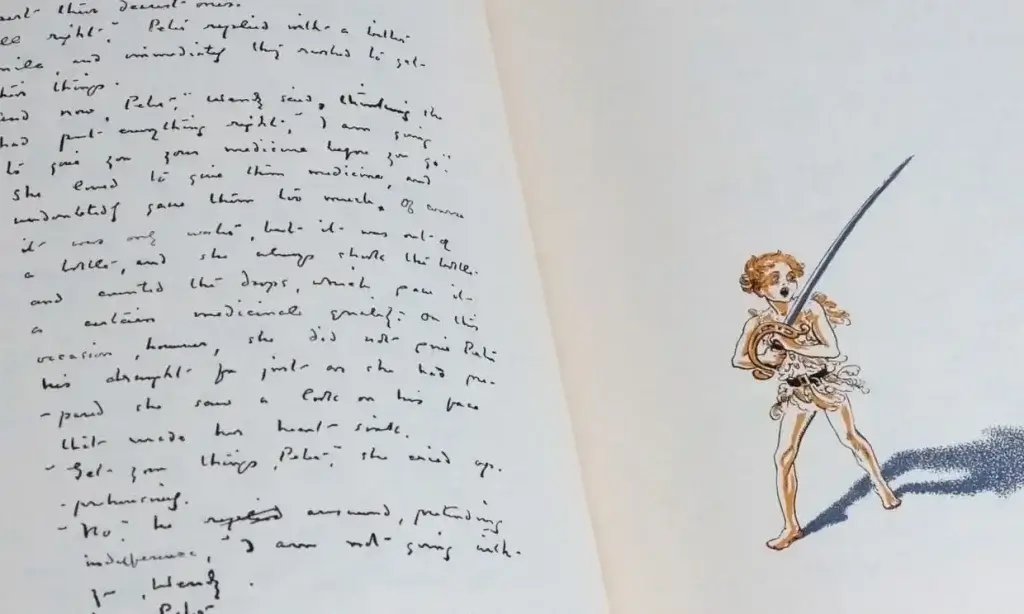 their dearest ones.
right," Peter replied with a bitter
smile, and immediately they rushed to get
their things.
And now, Peter," Wendy said, thinking she
had put everything right, "I am going
to give you your medicine before you go."
She loved to give them medicine, and
undoubtedly gave them too much. Of course
it was only water, but it was out of
a bottle, and she always shook the bottle
and counted the drops, which gave it
a certain medicinal quality. On this
occasion, however, she did not give Peter
his draught for just as she had pre-
-pared she saw a look on his face
that made her heart sink.
"Get your things, Peter," she cried
"No," he replied answered, pretending
indifference, "I am not going with
you, Wendy.
Peter